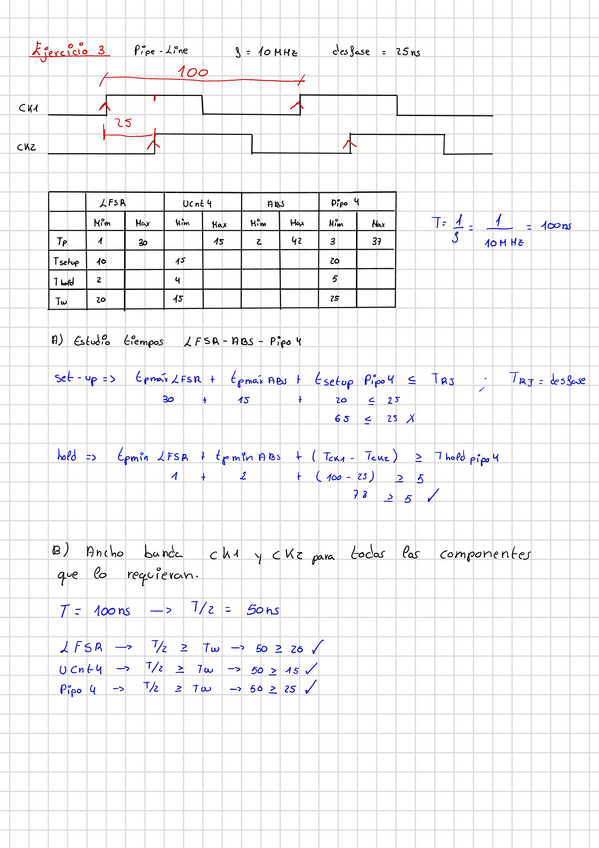 Ejercicio 3 Pipe-Line f = 10 MHz desfase = 25ns
100
CK1
25
CK2
LFSR UCnt4 ABS Pipo 4
Mim Max Mim Max Mim Max Mim Max
Tp 1 30 15 2 42 3 37
Tsetup 10 15 20
Thold 2 4 5
Tw 20 15 25
T = 1/f = 1/10 MHz = 100ns
A) Estudio tiempos LFSR - ABS - Pipo 4
set-up => tpmáx LFSR + tpmáx ABS + tsetup Pipo4 ≤ TRJ ; TRJ = desfase
30 + 15 + 20 ≤ 25
65 ≤ 25 X
hold => tpmin LFSR + tpmin ABS + (TCK1 - TCK2) ≥ Thold pipo4
1 + 2 + (100 - 25) ≥ 5
78 ≥ 5 ✓
B) Ancho banda CK1 y CK2 para todos los componentes
que lo requieran.
T = 100ns → T/2 = 50ns
LFSR → T/2 ≥ Tw → 50 ≥ 20 ✓
UCnt4 → T/2 ≥ Tw → 50 ≥ 15 ✓
Pipo 4 → T/2 ≥ Tw → 50 ≥ 25 ✓